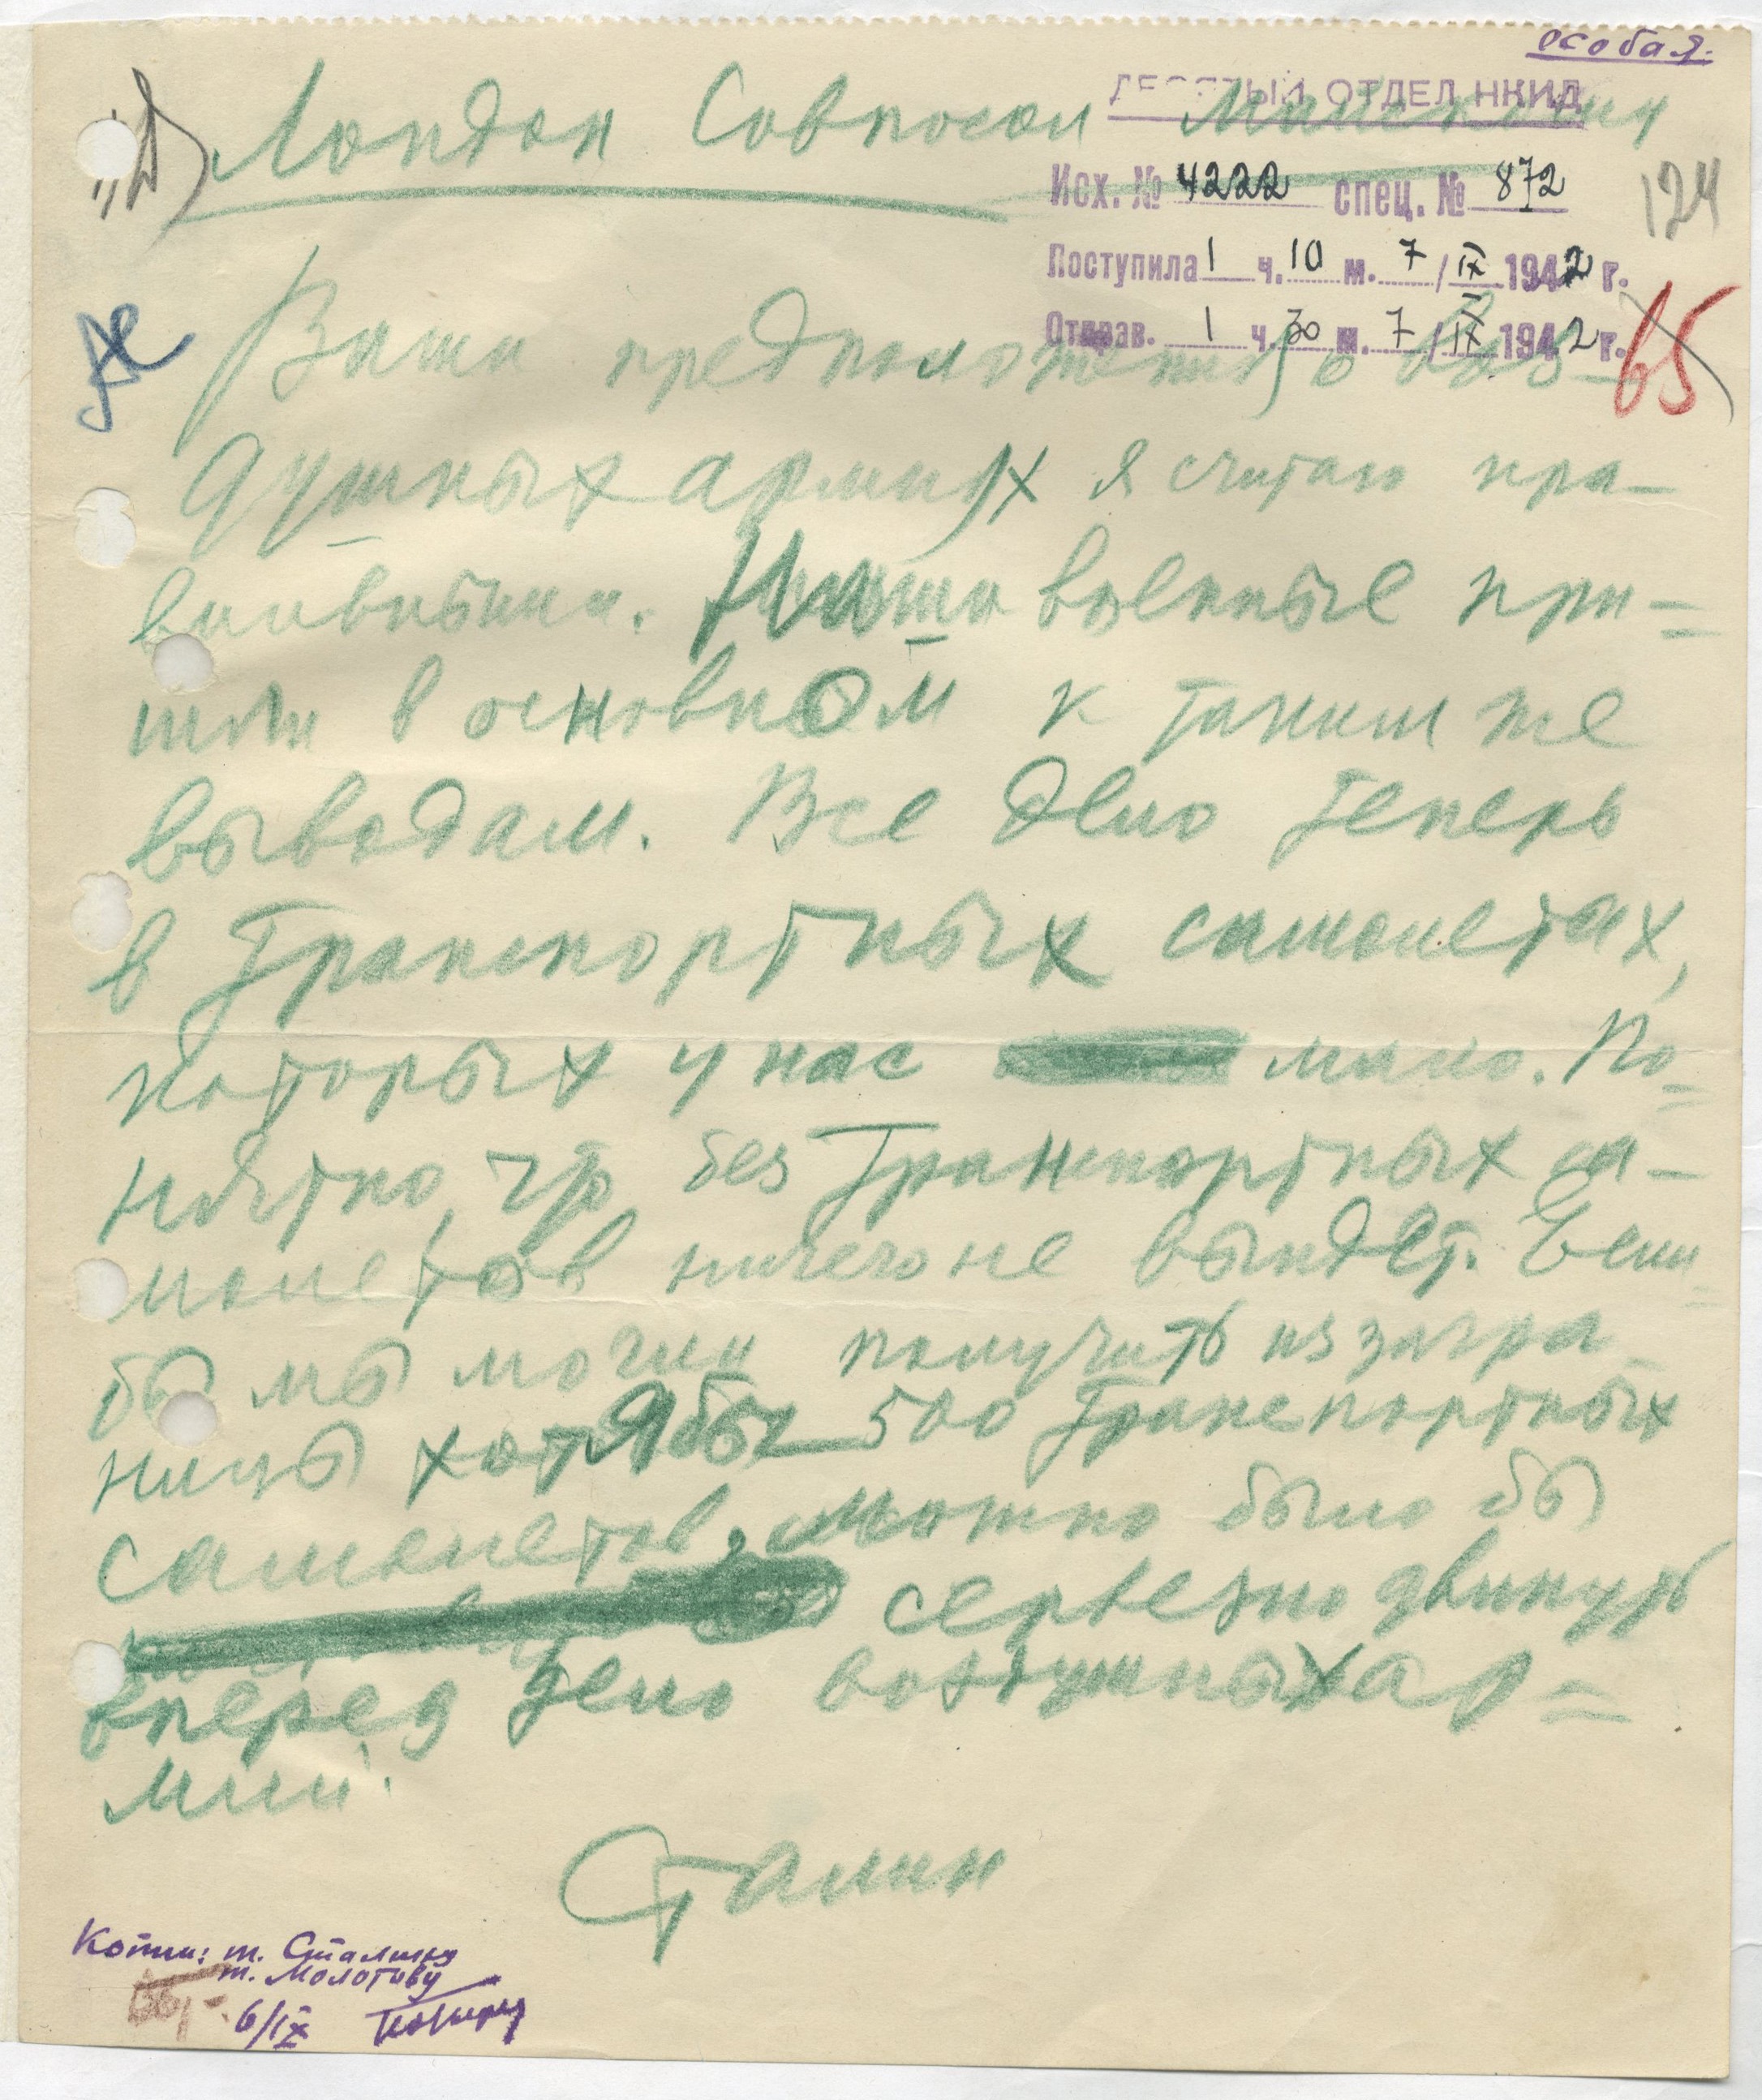 особая.
ДЕСЯТЫЙ ОТДЕЛ НКИД
Лондон Совпосол Майскому
Исх. № 4222 спец. № 872
124
Поступила 1 ч. 10 м. 7/IX 1942 г.
Отправ. 1 ч. 30 м. 7/IX 1942 г.
65
Ваши предположения о воз-
душных армиях я считаю пра-
вильными. Наши военные при=
шли в основном к таким же
выводам. Все дело теперь
в транспортных самолетах,
которых у нас мало. По=
нятно, что без транспортных са-
молетов ничего не выйдет. Если
бы мы могли получить из загра-
ницы хотя бы 500 транспортных
самолетов, можно было бы
серьезно двинуть
вперед дело воздушных ар=
мий.
Сталин
Копии: т. Сталину
т. Молотову
6/IX